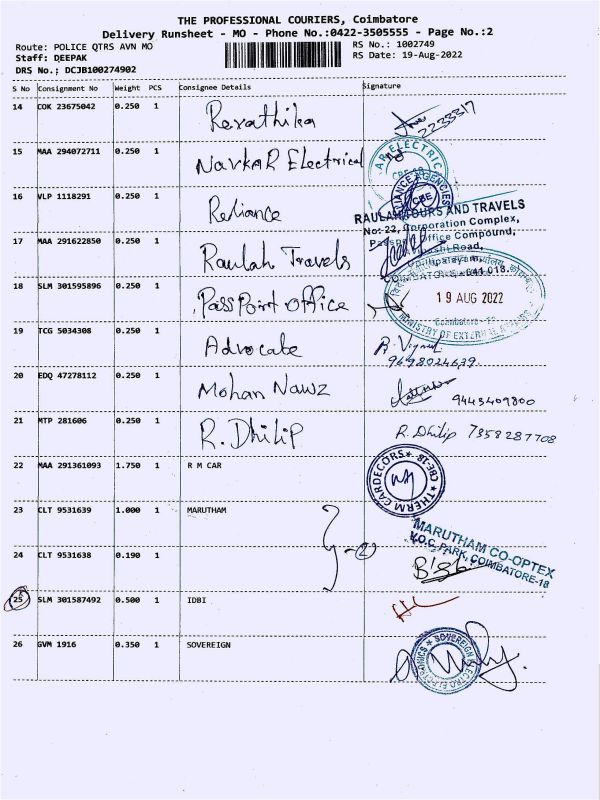 THE PROFESSIONAL COURIERS, Coimbatore
Delivery Runsheet - MO - Phone No.:0422-3505555 - Page No.:2
Route: POLICE QTRS AVN MO
RS No.: 1002749
Staff: DEEPAK
RS Date: 19-Aug-2022
DRS No.; DCJB100274902
S No Consignment No Weight PCS Consignee Details Signature
14 COK 23675042 0.250 1 Revathika
2233317
15 MAA 294072711 0.250 1 Navkar Electrical
AR ELECTRIC
16 VLP 1118291 0.250 1 Reliance
RELIANCE AGENCIES
CBE
RAULAH TOURS AND TRAVELS
No: 22, Corporation Complex,
Passport Office Compound,
Avinashi Road,
17 MAA 291622850 0.250 1 Raulah Travels
COIMBATORE - 641 018.
18 SLM 301595896 0.250 1 Passport office
19 AUG 2022
Coimbatore
MINISTRY OF EXTERNAL AFFAIRS
19 TCG 5034308 0.250 1 Advocate
9698024639
20 EDQ 47278112 0.250 1 Mohan Nawz
9443409800
21 MTP 281606 0.250 1 R. Dhilip
R. Dhilip 7358287708
22 MAA 291361093 1.750 1 R M CAR
THERM CARDECORS CBE-18
23 CLT 9531639 1.000 1 MARUTHAM
MARUTHAM CO-OPTEX
V.O.C. PARK, COIMBATORE-18
24 CLT 9531638 0.190 1
2
25 SLM 301587492 0.500 1 IDBI
26 GVM 1916 0.350 1 SOVEREIGN
SOVEREIGN ELECTRO ELECTRONICS